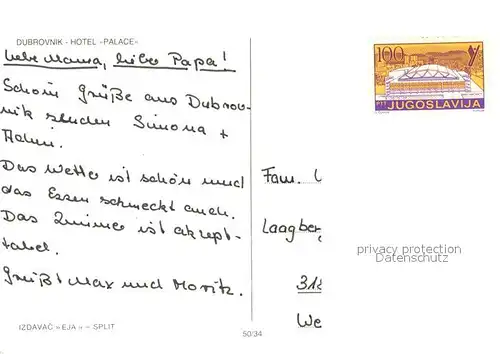 DUBROVNIK - HOTEL »PALACE«
Liebe Mama, lieber Papa!
Schöne Grüße aus Dubrov-
nik senden Simona +
Das Wetter ist schön und
das Essen schmeckt auch.
Das Zimmer ist akzep-
tabel.
Grüßt Max und Moritz.
IZDAVAČ »EJA« – SPLIT
50/34
100
JUGOSLAVIJA
Fam.
Laagber
318
We
privacy protection
Datenschutz